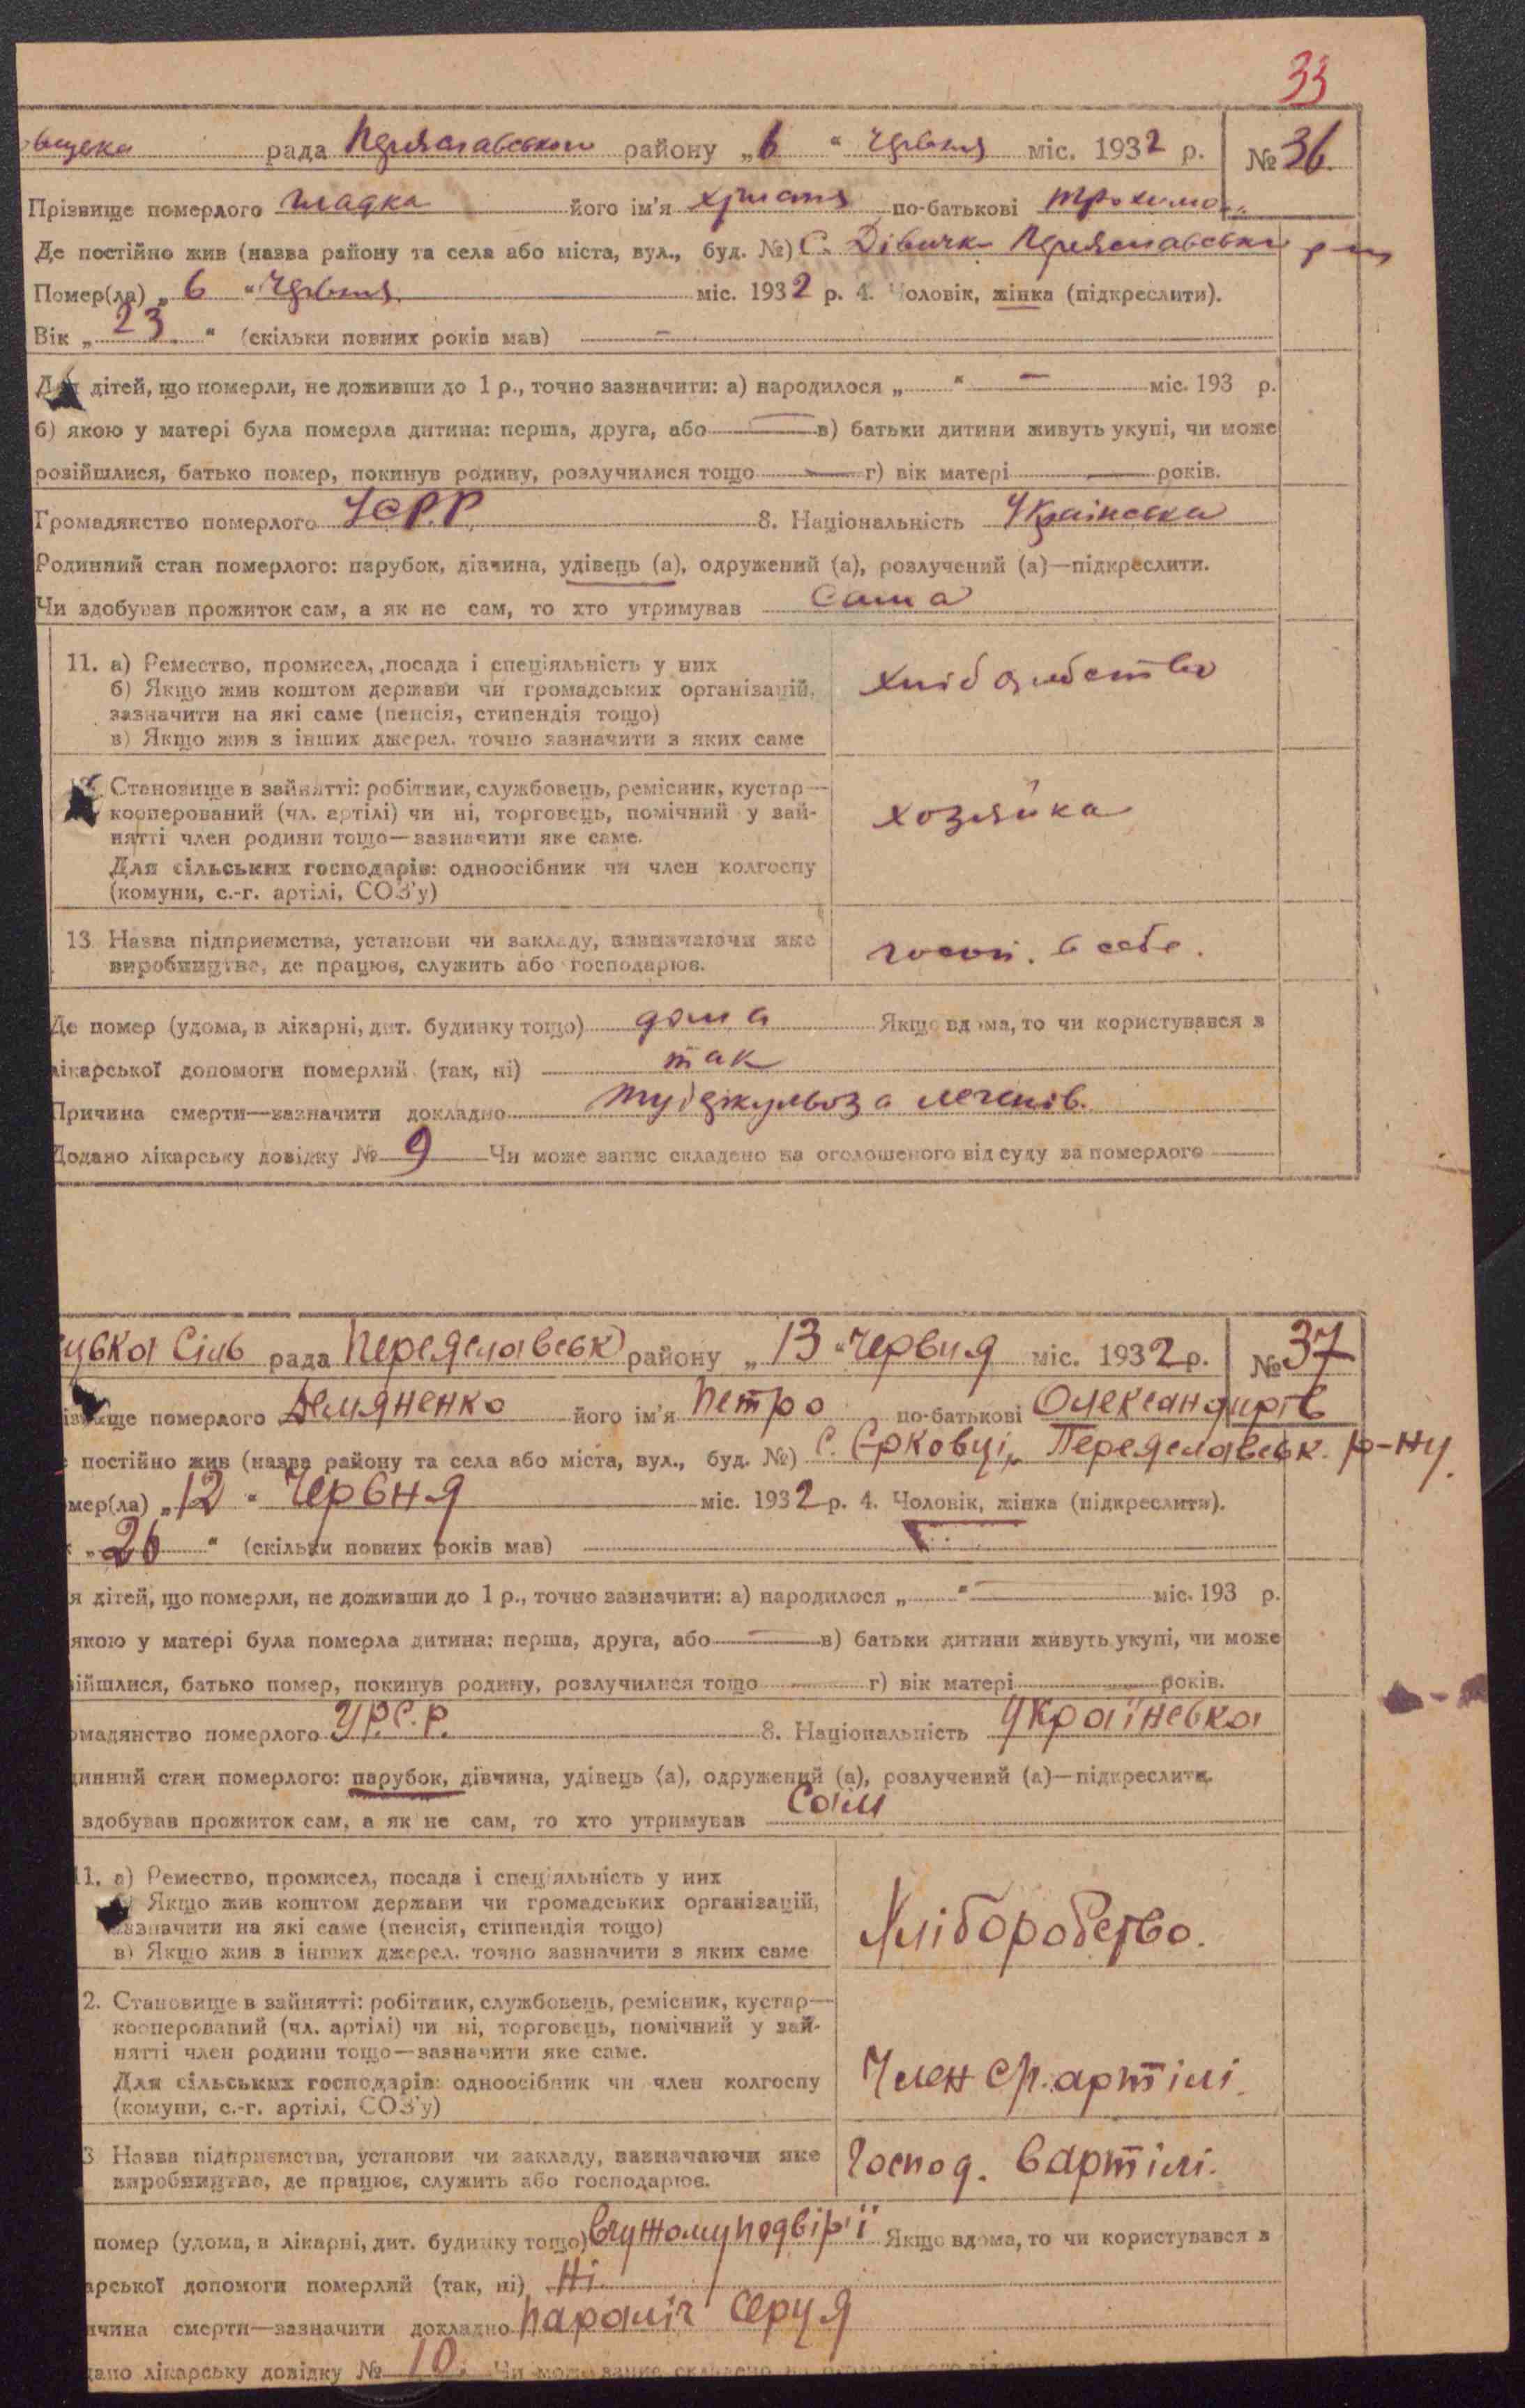 33
рада Переяславського району „6“ червня міс. 1932 р. № 36.
Прізвище померлого Гладка його ім'я Христя по-батькові Трохимов.
Де постійно жив (назва району та села або міста, вул., буд. №) С. Дівичк Переяславськ р-н
Помер(ла) „6“ Червня міс. 1932 р. 4. Чоловік, жінка (підкреслити).
Вік „23“ (скільки повних років мав) —
Для дітей, що померли, не доживши до 1 р., точно зазначити: а) народилося „ “ — міс. 193 р.
б) якою у матері була померла дитина: перша, друга, або — в) батьки дитини живуть укупі, чи може
розійшлися, батько помер, покинув родину, розлучилися тощо — г) вік матері — років.
Громадянство померлого УСРР 8. Національність Українська
Родинний стан померлого: парубок, дівчина, удівець (а), одружений (а), розлучений (а)—підкреслити.
Чи здобував прожиток сам, а як не сам, то хто утримував Сама
11. а) Ремество, промисел, посада і спеціяльність у них
б) Якщо жив коштом держави чи громадських організацій,
зазначити на які саме (пенсія, стипендія тощо)
в) Якщо жив з інших джерел. точно зазначити з яких саме
хліборобство
Становище в зайнятті: робітник, службовець, ремісник, кустар—
кооперований (чл. артілі) чи ні, торговець, помічний у зай-
нятті член родини тощо—зазначити яке саме.
Для сільських господарів: одноосібник чи член колгоспу
(комуни, с.-г. артілі, СОЗ'у)
хозяйка
13. Назва підприємства, установи чи закладу, зазначаючи яке
виробництво, де працює, служить або господарює.
госп. в себе.
Де помер (удома, в лікарні, дит. будинку тощо) дома Якщо вдома, то чи користувався з
лікарської допомоги померлий (так, ні) так
Причина смерти—зазначити докладно туберкульоза легенів.
Додано лікарську довідку № 9 Чи може запис складено на оголошеного від суду за померлого —
цька Сіль рада Переяславськ району „13“ Червня міс. 1932 р. № 37
ізвище померлого Демяненко його ім'я Петро по-батькові Олександрів
постійно жив (назва району та села або міста, вул., буд. №) С. Єрковці, Переяславськ. р-ну.
мер(ла) „12“ Червня міс. 1932 р. 4. Чоловік, жінка (підкреслити).
„26“ (скільки повних років мав)
я дітей, що померли, не доживши до 1 р., точно зазначити: а) народилося „ “ — міс. 193 р.
якою у матері була померла дитина: перша, друга, або — в) батьки дитини живуть укупі, чи може
війшлися, батько помер, покинув родину, розлучилися тощо г) вік матері років.
омадянство померлого У.Р.С.Р. 8. Національність Українська
динний стан померлого: парубок, дівчина, удівець (а), одружений (а), розлучений (а)—підкреслити.
здобував прожиток сам, а як не сам, то хто утримував Сам
11. а) Ремество, промисел, посада і спеціяльність у них
Якщо жив коштом держави чи громадських організацій,
зазначити на які саме (пенсія, стипендія тощо)
в) Якщо жив з інших джерел. точно зазначити з яких саме
Хліборобство.
2. Становище в зайнятті: робітник, службовець, ремісник, кустар—
кооперований (чл. артілі) чи ні, торговець, помічний у зай-
нятті член родини тощо—зазначити яке саме.
Для сільських господарів: одноосібник чи член колгоспу
(комуни, с.-г. артілі, СОЗ'у)
Член ср. артілі.
3 Назва підприємства, установи чи закладу, зазначаючи яке
виробництво, де працює, служить або господарює.
Господ. Вартілі.
помер (удома, в лікарні, дит. будинку тощо) Вчужому подвір'ї Якщо вдома, то чи користувався з
арської допомоги померлий (так, ні) Ні
ичина смерти—зазначити докладно параліч серця
дано лікарську довідку № 10. Чи може запис складено на